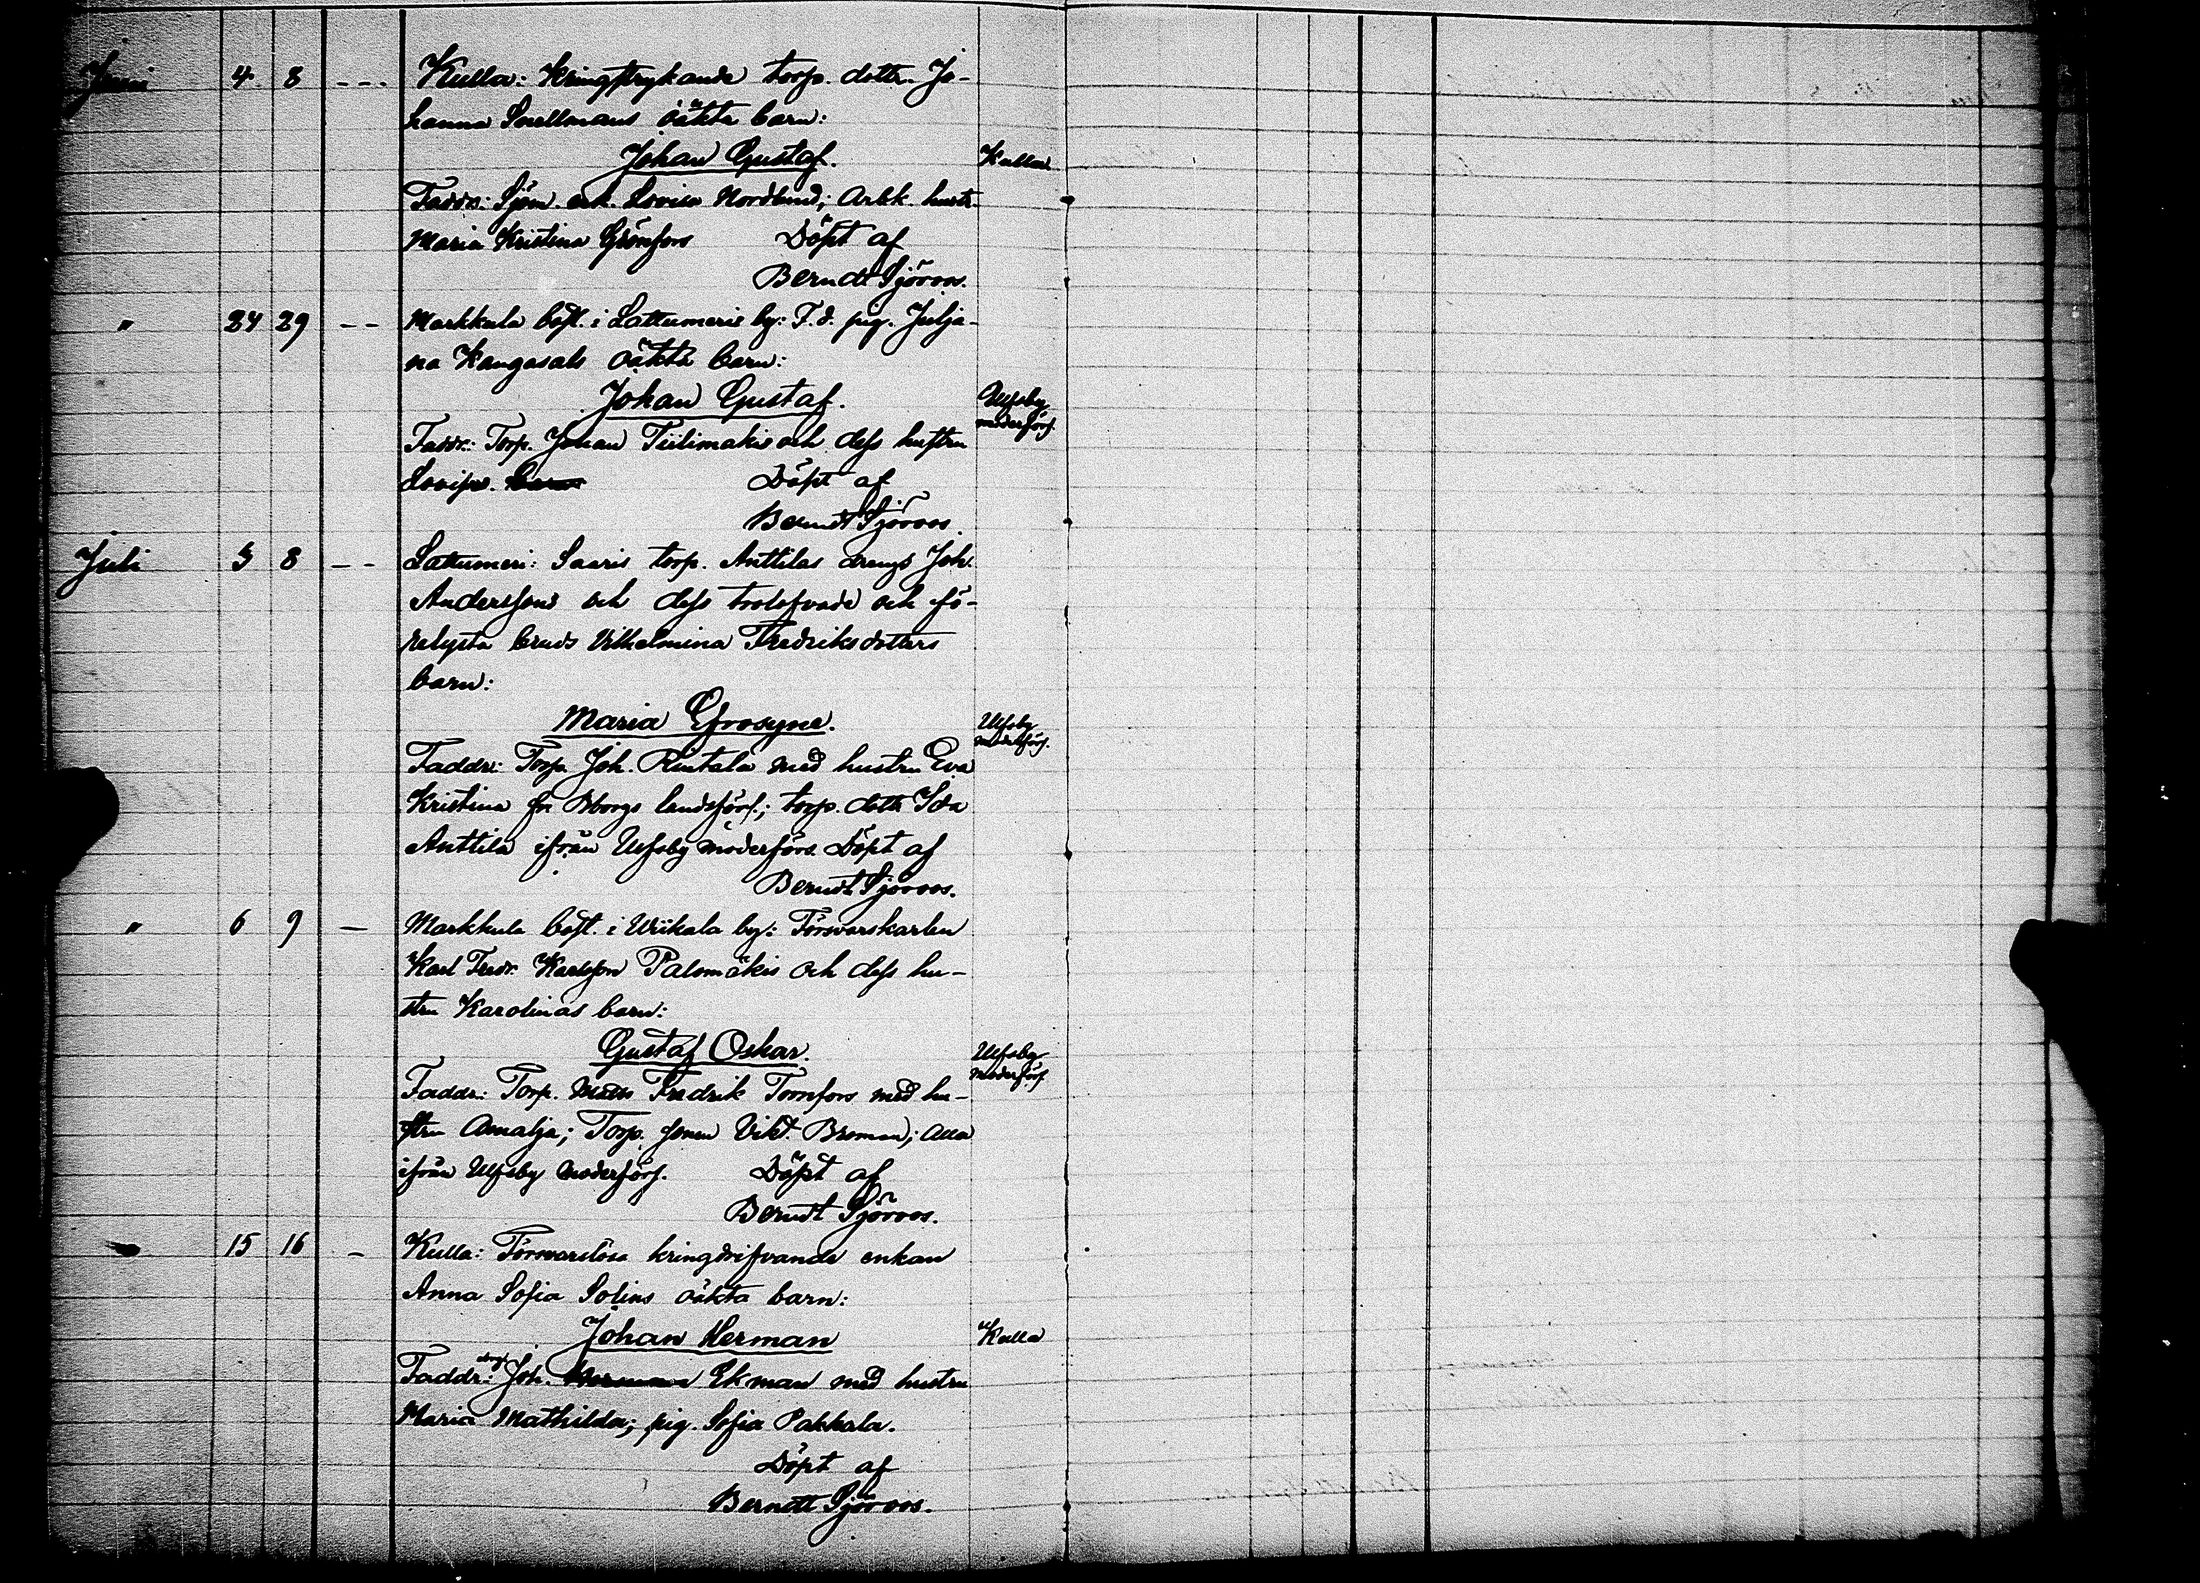 Juni 4 8 --- Kulla: Kringstrykande torp. dottr. Jo-
hanna Snellmans oäkta barn:
Johan Gustaf. Kulla
Faddr.: Sjöm. enk. Lovisa Nordlund; Arbk. hustr.
Maria Kristina Grönfors Döpt af
Berndt Sjöroos.
" 24 29 -- Markkula bost. i Lattumeri by: F.d. pig. Julja-
na Kangasals oäkta barn:
Johan Gustaf. Ulfsby
moderförs.
Faddr.: Torp. Johan Tiilimäki och dess hustru
Lovisa. Döpt af
Berndt Sjöroos.
Juli 5 8 -- Lattumeri: Saaris torp. Anttilas drengs Joh.
Anderssons och dess trolofvade och fö-
relysta bruds Vilhelmina Fredriksdotters
barn:
Maria Efrosyne. Ulfsby
moderförs.
Faddr: Torp. Joh. Rintala med hustru Eva
Kristina fr. Bborgs landsförs.; torp. dottr Ida
Anttila ifrån Ulfsby moderförs. Döpt af
Berndt Sjöroos.
" 6 9 - Markkula bost. i Wiikala by: Försvarskarlen
Karl Fredr. Karlsson Palomäkis och dess hu-
stru Karolinas barn:
Gustaf Oskar. Ulfsby
moderförs.
Faddr.: Torp. Fredrik Tornfors med hu-
stru Amalja; Torp. sonen Vikt. Broman; Alla
ifrån Ulfsby moderförs. Döpt af
Berndt Sjöroos.
15 16 - Kulla: Försvarslösa kringdrifvande enkan
Anna Sofia Solins oäkta barn:
Johan Herman Kulla
Faddr.: Joh. Herman Ekman med hustru
Maria Mathilda; pig. Sofia Pakkala.
Döpt af
Berndt Sjöroos.